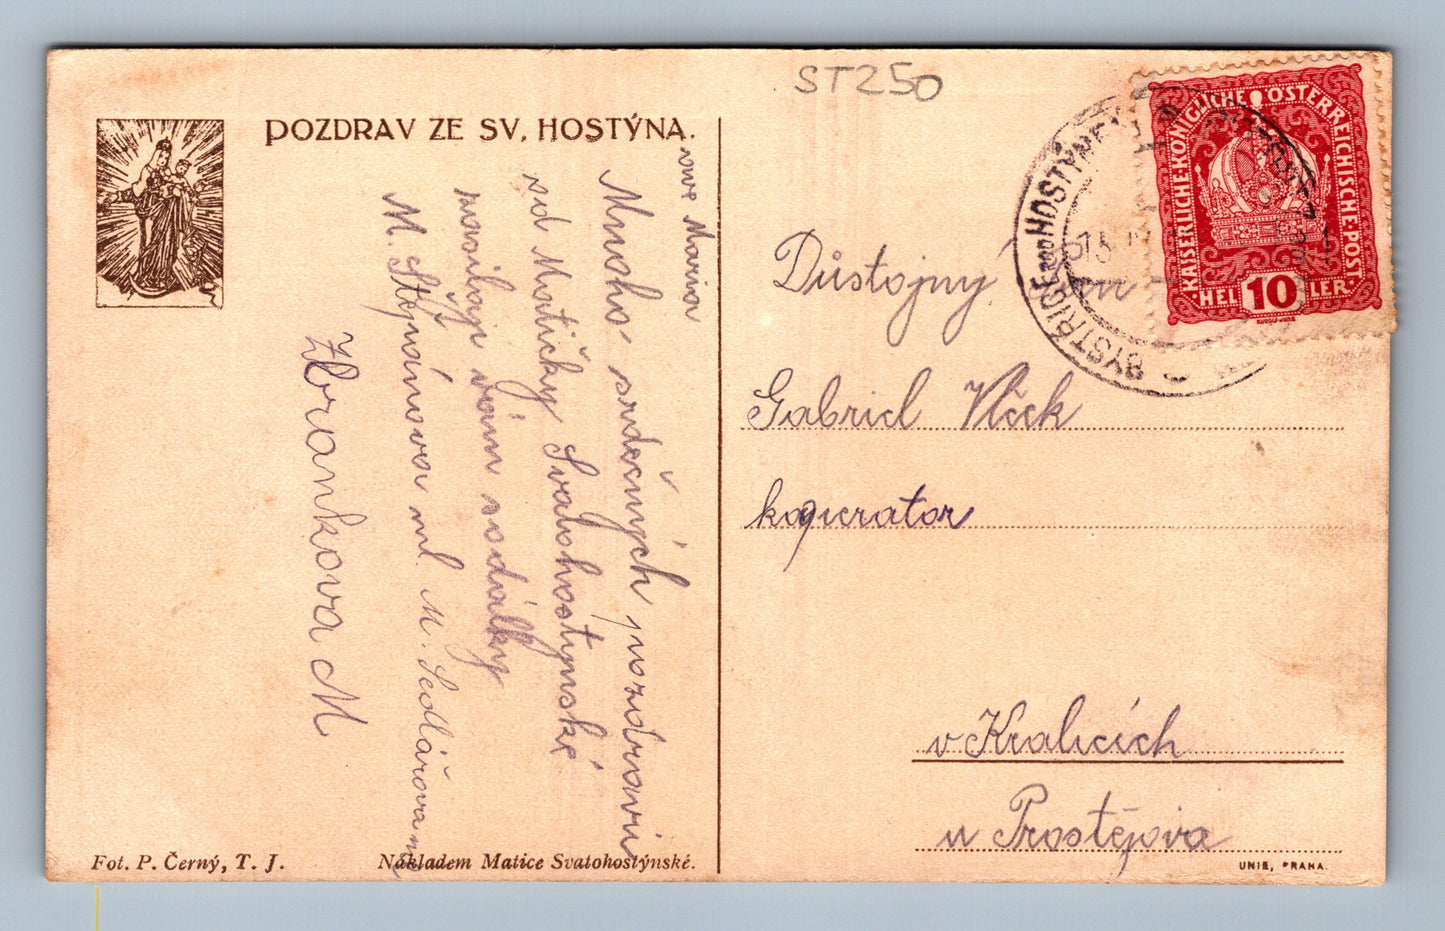 ST250
POZDRAV ZE SV. HOSTÝNA.
Ave Maria
Mnoho srdečných pozdravů
od Matičky Svatohostýnské
zasílají vám sodálky
M. Štěpánova ml. M. Sedlářova ml
Zbrankova M
Fot. P. Černý, T. J.
Nákladem Matice Svatohostýnské.
KAISERLICHE·KÖNIGLICHE ÖSTERREICHISCHE·POST
HELLER
10
BYSTŘICE POD HOSTÝNEM
15
Důstojný Pán
Gabriel Vlček
kooperator
v Kralicích
u Prostějova
UNIE, PRAHA.